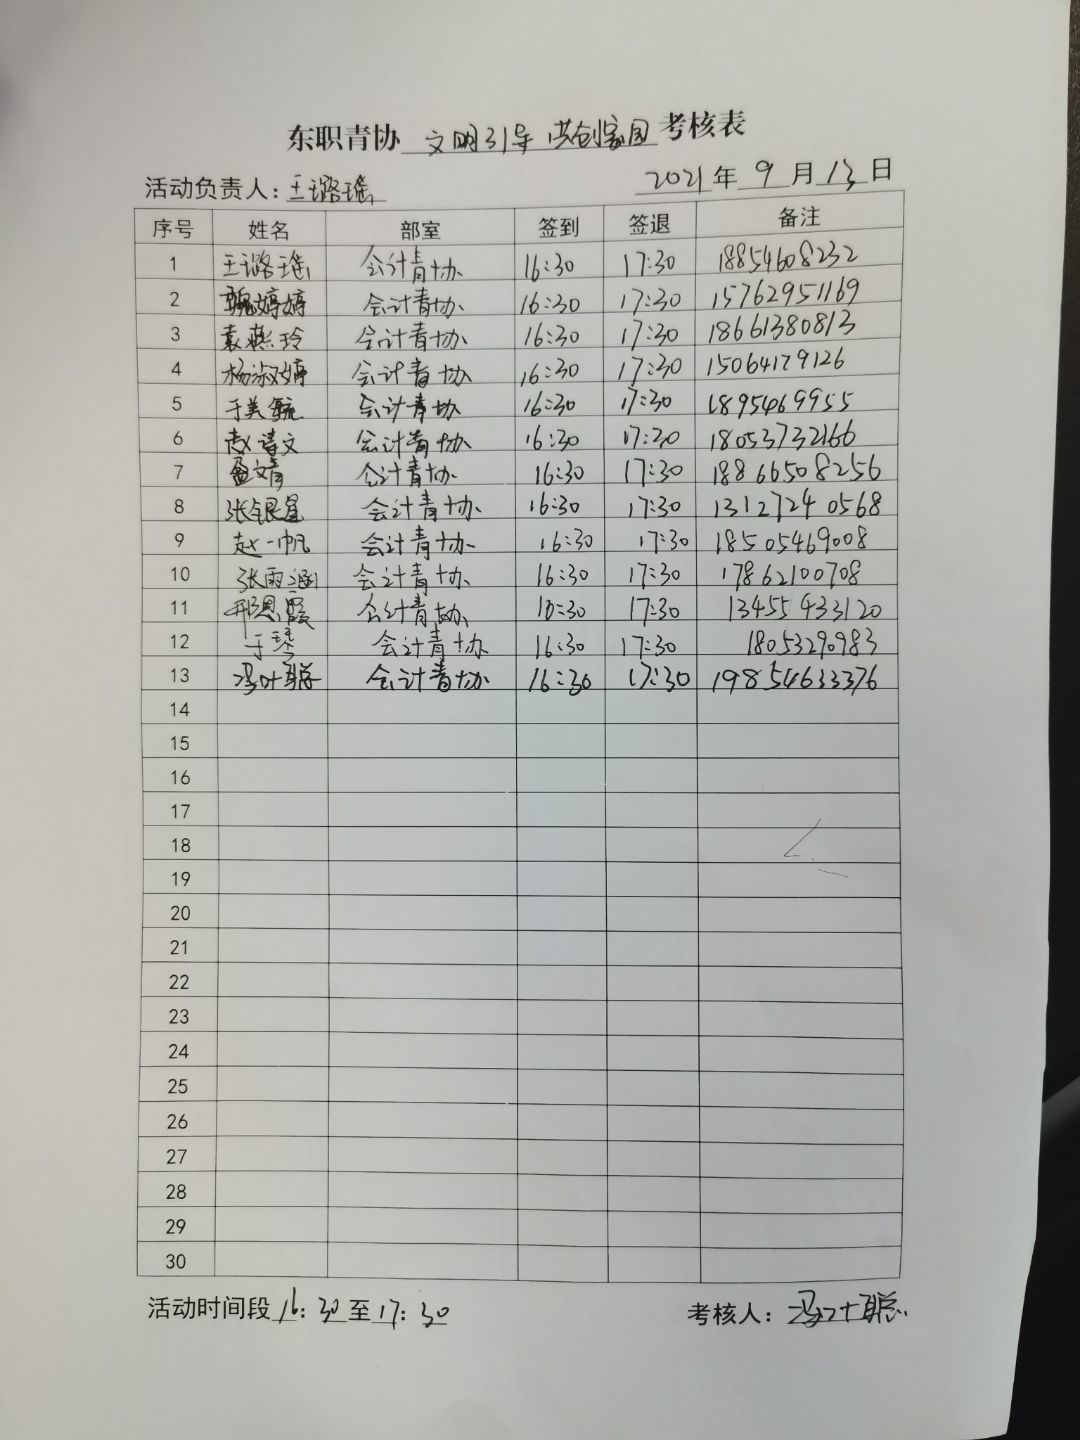 东职青协 文明引导 共创家园 考核表
活动负责人：王璐瑶 2021年9月13日
序号 姓名 部室 签到 签退 备注
1 王璐瑶 会计青协 16:30 17:30 18854608232
2 魏婷婷 会计青协 16:30 17:30 15762951169
3 袁燕玲 会计青协 16:30 17:30 18661380813
4 杨淑婷 会计青协 16:30 17:30 15064179126
5 于美毓 会计青协 16:30 17:30 1895469955
6 赵诗文 会计青协 16:30 17:30 18053732166
7 文青 会计青协 16:30 17:30 18866508256
8 张银星 会计青协 16:30 17:30 13127240568
9 赵一帆 会计青协 16:30 17:30 18505469008
10 张雨涵 会计青协 16:30 17:30 17862100708
11 邢恩霞 会计青协 16:30 17:30 13455433120
12 于琴 会计青协 16:30 17:30 18053290983
13 冯叶聪 会计青协 16:30 17:30 19854633376
14
15
16
17
18
19
20
21
22
23
24
25
26
27
28
29
30
活动时间段16：30至17：30 考核人：冯叶聪